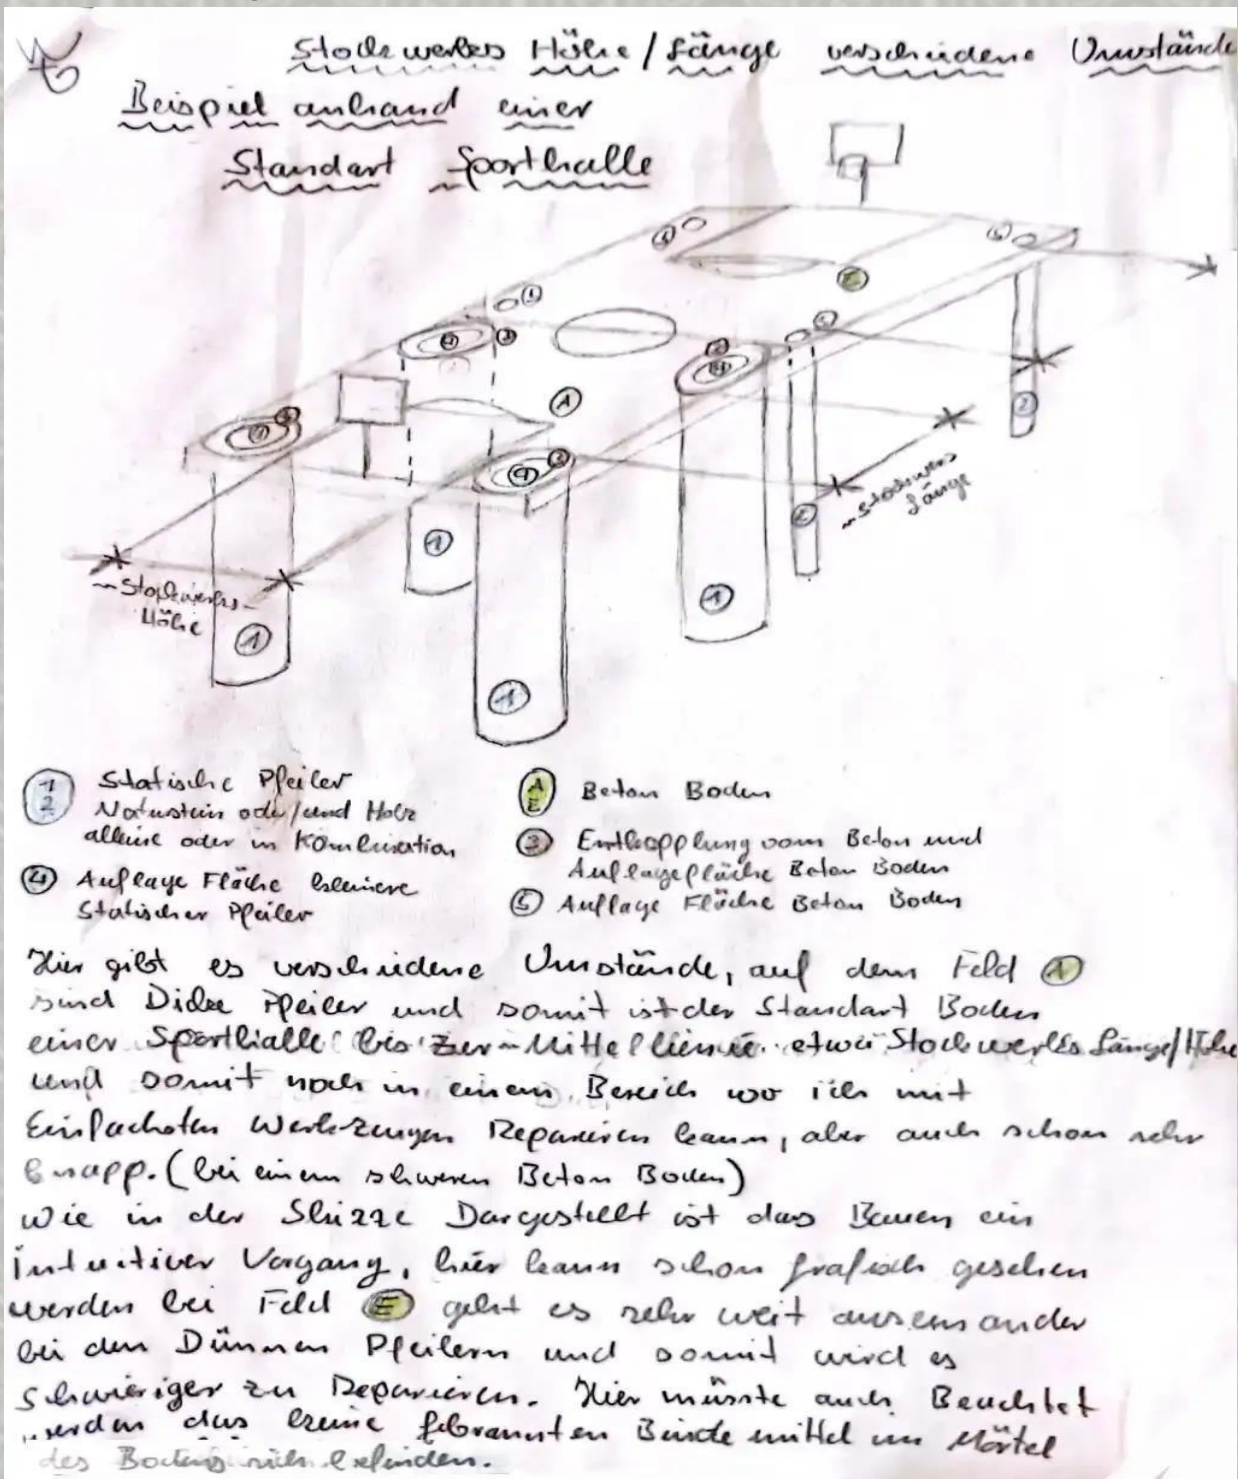 Stockwerks Höhe / Länge verschiedene Umstände
Beispiel anhand einer
Standart Sporthalle
4
5
1
3
E
5
4
3
4
A
3
4
3
4
2
Stockwerks
Länge
2
1
Stockwerks-
Höhe
1
1
1
1 2 Statische Pfeiler
Naturstein oder/und Holz
alleine oder in Kombination
4 Auflage Fläche kleinere
Statischer Pfeiler
A E Beton Boden
3 Entkopplung vom Beton und
Auflagefläche Beton Boden
5 Auflage Fläche Beton Boden
Hier gibt es verschiedene Umstände, auf dem Feld A
sind Dicke Pfeiler und somit ist der Standart Boden
einer Sporthalle bis zur Mittellinie etwa Stockwerks Länge/Höhe
und somit noch in einem Bereich wo ich mit
Einfachsten Werkzeugen Reparieren kann, aber auch schon sehr
knapp. (bei einem schweren Beton Boden)
Wie in der Skizze Dargestellt ist das Bauen ein
Intuitiver Vorgang, hier kann schon grafisch gesehen
werden bei Feld E geht es sehr weit auseinander
bei den Dünnen Pfeilern und somit wird es
Schwieriger zu Reparieren. Hier müsste auch Beachtet
werden das keine gebrannten Bindemittel im Mörtel
des Bodens sich befinden.